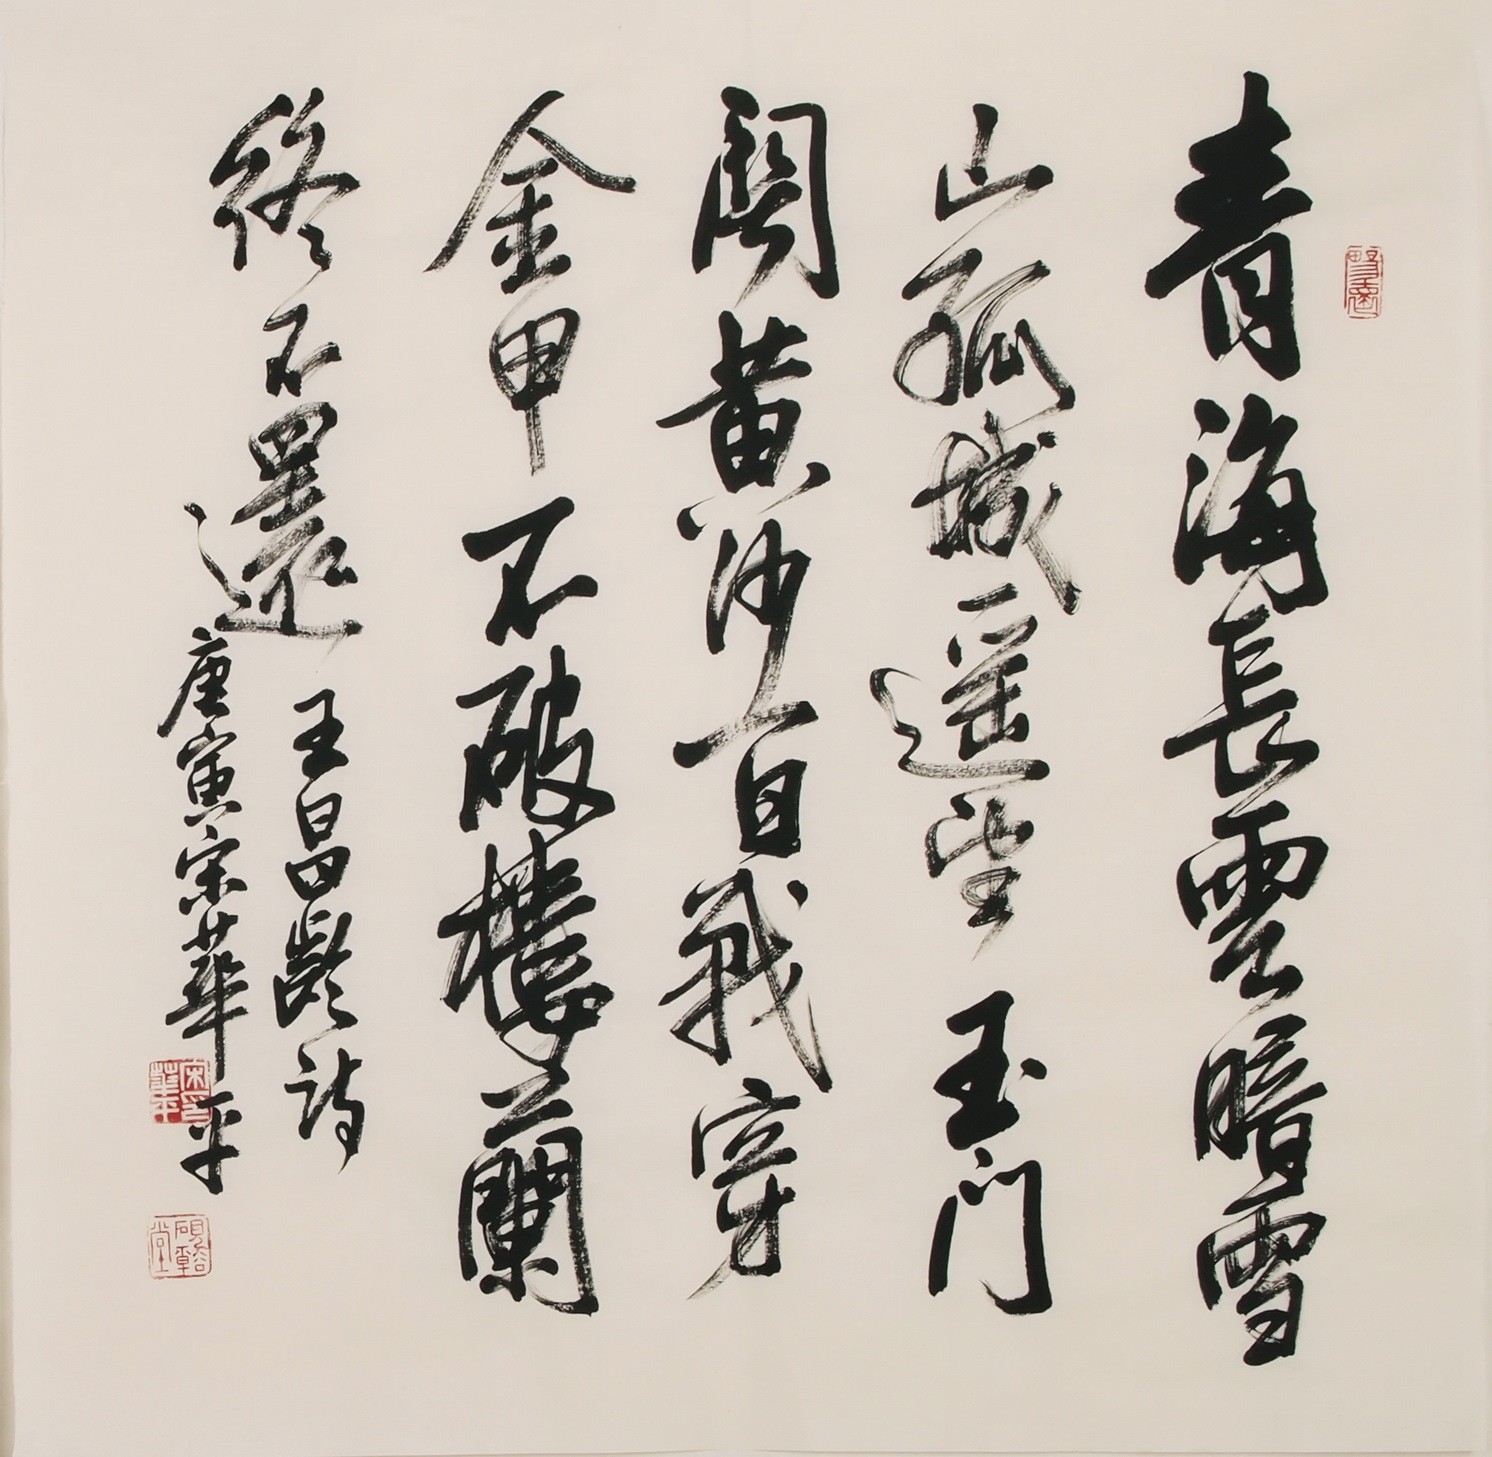 青海長雲暗雪
山孤城遥望玉門
關黄沙百戰穿
金甲不破樓蘭
終不還
王昌齡詩
庚寅宋華平